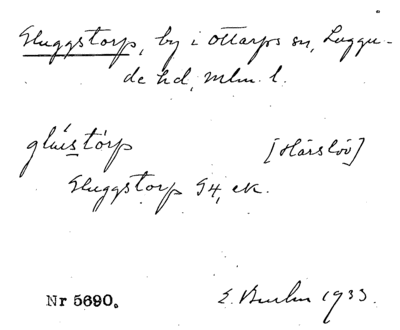 Gluggstorp, by i Ottarps sn, Luggu-
de hd, Mlm. l.
glu̇́stȯ́rp [Härslöv]
Gluggstorp G4, ek.
Nr 5690. E. 1933.